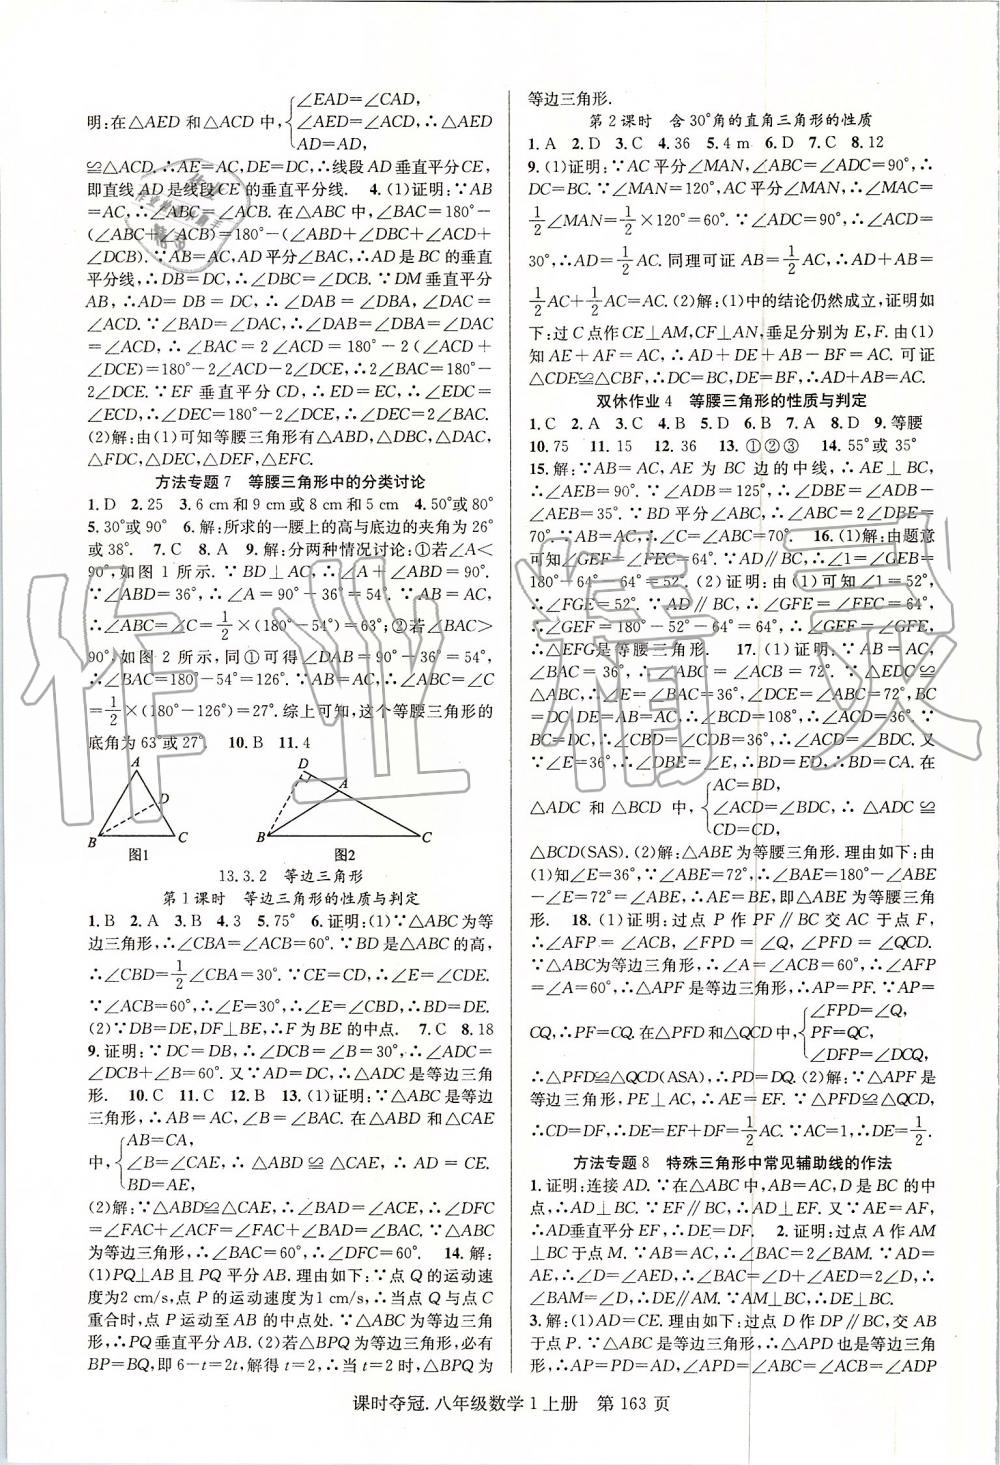 ∠EAD=∠CAD,
明:在△AED 和△ACD 中,∠AED=∠ACD,∴△AED
AD=AD,
≌△ACD.∴AE=AC,DE=DC,∴线段 AD 垂直平分CE,
即直线 AD 是线段 CE 的垂直平分线. 4.(1)证明:∵AB
=AC,∴∠ABC=∠ACB. 在△ABC 中,∠BAC=180°-
(∠ABC+∠ACB)=180°-(∠ABD+∠DBC+∠ACD+
∠DCB).∵AB=AC,AD平分∠BAC,∴AD 是 BC 的垂直
平分线,∴DB=DC,∴∠DBC=∠DCB.∵DM 垂直平分
AB,∴AD=DB=DC,∴∠DAB=∠DBA,∠DAC=
∠ACD.∵∠BAD=∠DAC,∴∠DAB=∠DBA=∠DAC
=∠ACD,∴∠BAC=2∠ACD=180°-2(∠ACD+
∠DCE)=180°-2∠ACD-2∠DCE,∴2∠BAC=180°-
2∠DCE.∵EF 垂直平分 CD,∴ED=EC,∴∠EDC=
∠ECD,∴∠DEC=180°-2∠DCE,∴∠DEC=2∠BAC.
(2)解:由(1)可知等腰三角形有△ABD,△DBC,△DAC,
△FDC,△DEC,△DEF,△EFC.
方法专题 7 等腰三角形中的分类讨论
1. D 2. 25 3. 6 cm和9 cm或8 cm和5 cm 4. 50°或80°
5. 30°或 90° 6. 解:所求的一腰上的高与底边的夹角为 26°
或38°. 7. C 8. A 9. 解:分两种情况讨论:①若∠A<
90°,如图 1 所示.∵BD⊥AC,∴∠A+∠ABD=90°.
∵∠ABD=36°,∴∠A=90°-36°=54°.∵AB=AC,
∴∠ABC=∠C=1/2×(180°-54°)=63°;②若∠BAC>
90°,如图 2 所示,同①可得∠DAB=90°-36°=54°,
∴∠BAC=180°-54°=126°.∵AB=AC,∴∠ABC=∠C=
1/2×(180°-126°)=27°.综上可知,这个等腰三角形的
底角为 63°或 27°. 10. B 11. 4
A D B C 图1
D A B C 图2
13.3.2 等边三角形
第 1 课时 等边三角形的性质与判定
1. B 2. A 3. B 4. 3 5. 75° 6. 证明:(1)∵△ABC 为等
边三角形,∴∠CBA=∠ACB=60°.∵BD 是△ABC 的高,
∴∠CBD=1/2∠CBA=30°.∵CE=CD,∴∠E=∠CDE.
∵∠ACB=60°,∴∠E=30°,∴∠E=∠CBD,∴BD=DE.
(2)∵DB=DE,DF⊥BE,∴F 为 BE 的中点. 7. C 8. 18
9. 证明:∵DC=DB,∴∠DCB=∠B=30°,∴∠ADC=
∠DCB+∠B=60°. 又∵AD=DC,∴△ADC 是等边三角
形. 10. C 11. C 12. B 13. (1)证明:∵△ABC 是等边三
角形,∴AB=AC,∠B=∠BAC. 在△ABD 和△CAE
AB=CA,
中,∠B=∠CAE,∴△ABD≌△CAE,∴AD=CE.
BD=AE,
(2)解:∵△ABD≌△CAE,∴∠BAD=∠ACE,∴∠DFC
=∠FAC+∠ACF=∠FAC+∠BAD=∠BAC.∵△ABC
为等边三角形,∴∠BAC=60°,∴∠DFC=60°. 14. 解:
(1)PQ⊥AB 且 PQ 平分 AB. 理由如下:∵点 Q 的运动速
度为2 cm/s,点 P 的运动速度为1 cm/s,∴当点 Q 与点 C
重合时,点 P 运动至 AB 的中点处.∵△ABC 为等边三角
形,∴PQ垂直平分 AB. (2)若△BPQ 为等边三角形,必有
BP=BQ,即 6-t=2t,解得 t=2,∴当 t=2时,△BPQ 为
等边三角形.
第 2 课时 含 30°角的直角三角形的性质
1. A 2. D 3. C 4. 36 5. 4 m 6. D 7. C 8. 12
9. (1)证明:∵AC 平分∠MAN,∠ABC=∠ADC=90°,∴
DC=BC.∵∠MAN=120°,AC 平分∠MAN,∴∠MAC=
1/2∠MAN=1/2×120°=60°.∵∠ADC=90°,∴∠ACD=
30°,∴AD=1/2AC. 同理可证 AB=1/2AC,∴AD+AB=
1/2AC+1/2AC=AC. (2)解:(1)中的结论仍然成立,证明如
下:过 C 点作 CE⊥AM,CF⊥AN,垂足分别为 E,F. 由(1)
知 AE+AF=AC,∴AD+DE+AB-BF=AC. 可证
△CDE≌△CBF,∴DC=BC,DE=BF,∴AD+AB=AC.
双休作业 4 等腰三角形的性质与判定
1. C 2. A 3. C 4. B 5. D 6. B 7. A 8. D 9. 等腰
10. 75 11. 15 12. 36 13. ①②③ 14. 55°或 35°
15. 解:∵AB=AC,AE 为 BC 边的中线,∴AE⊥BC,
∴∠AEB=90°.∵∠ADB=125°,∴∠DBE=∠ADB-
∠AEB=35°.∵BD 平分∠ABC,∴∠ABC=2∠DBE=
70°.∵AB=AC,∴∠C=∠ABC=70°. 16. (1)解:由题意
可知∠GEF=∠FEC=64°.∵AD∥BC,∴∠1=∠GEB=
180°-64°-64°=52°. (2)证明:由(1)可知∠1=52°,
∴∠FGE=52°.∵AD∥BC,∴∠GFE=∠FEC=64°,
∴∠GEF=180°-52°-64°=64°,∴∠GEF=∠GFE,
∴△EFG是等腰三角形. 17. (1)证明:∵AB=AC,
∠BAC=36°,∴∠ABC=∠ACB=72°.∵△EDC≌
△ABC,∴∠E=∠BAC=36°,∠DCE=∠ABC=72°,BC
=DC,DE=AB,∴∠BCD=108°,∴∠ACD=36°.∵
BC=DC,∴∠CBD=∠CDB=36°,∴∠ACD=∠CDB. 又
∵∠E=36°,∴∠E=∠DBE,∴BD=ED,∴BD=CA. 在
AC=BD,
△ADC 和△BCD 中,∠ACD=∠BDC,∴△ADC≌
CD=CD,
△BCD(SAS). (2)解:△ABE为等腰三角形. 理由如下:由
(1)知∠E=36°,∠ABE=72°,∴∠BAE=180°-∠ABE
-∠E=72°=∠ABE,∴AE=BE,即△ABE为等腰三角
形. 18. (1)证明:过点 P 作 PF∥BC 交 AC 于点 F,
∴∠AFP=∠ACB,∠FPD=∠Q,∠PFD=∠QCD.
∵△ABC为等边三角形,∴∠A=∠ACB=60°,∴∠A=
∠AFP=60°,∴△APF 是等边三角形,∴AP=PF.∵AP=
∠FPD=∠Q,
CQ,∴PF=CQ. 在△PFD 和△QCD 中,PF=QC,
∠DFP=∠DCQ,
∴△PFD≌△QCD(ASA),∴PD=DQ. (2)解:∵△APF 是
等边三角形,PE⊥AC,∴AE=EF.∵△PFD≌△QCD,
∴CD=DF,∴DE=EF+DF=1/2AC.∵AC=1,∴DE=1/2.
方法专题 8 特殊三角形中常见辅助线的作法
1. 证明:连接 AD.∵在△ABC 中,AB=AC,D 是 BC 的中
点,∴AD⊥BC.∵EF∥BC,∴AD⊥EF. 又∵AE=AF,
∴AD垂直平分 EF,∴DE=DF. 2. 证明:过点 A 作 AM
⊥BC 于点 M.∵AB=AC,∴∠BAC=2∠BAM.∵AD=
AE,∴∠D=∠AED,∴∠BAC=∠D+∠AED=2∠D,∴
∠BAM=∠D,∴DE∥AM.∵AM⊥BC,∴DE⊥BC.
3. 解:(1)AD=CE. 理由如下:过点 D 作 DP∥BC,交 AB
于点 P.∵△ABC 是等边三角形,∴△APD 也是等边三角
形,∴AP=PD=AD,∠APD=∠ABC=∠ACB=∠ADP
课时夺冠.八年级数学 1 上册 第 163 页